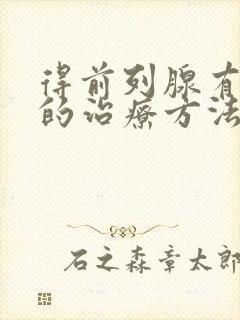 得前列腺有
的治療方法
石之森章太郎